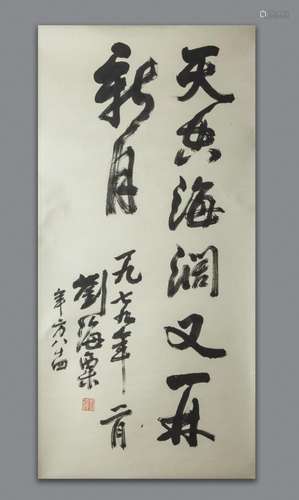 天空海濶又再
新月
一九七九年二月
劉海粟
年方八十四